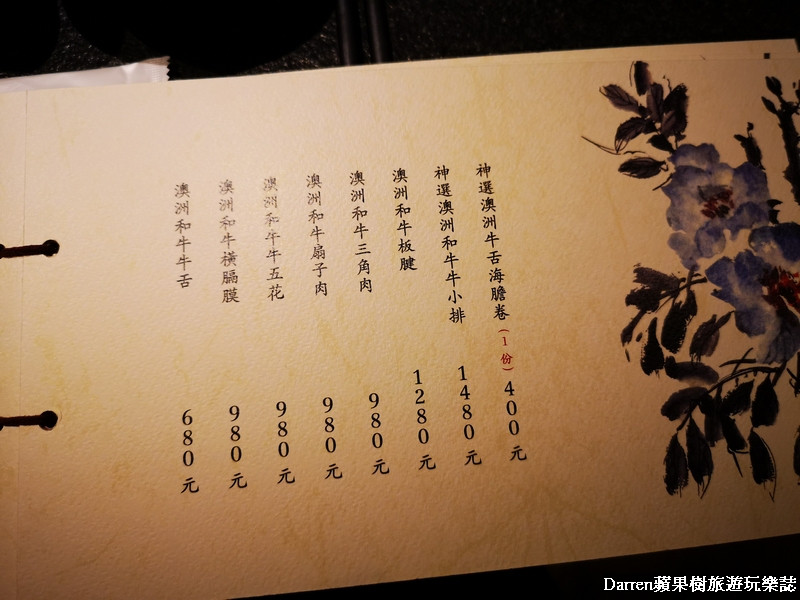 神選澳洲牛舌海膽卷(1份)400元
神選澳洲和牛牛小排1480元
澳洲和牛板腱1280元
澳洲和牛三角肉980元
澳洲和牛扇子肉980元
澳洲和牛牛五花980元
澳洲和牛橫膈膜980元
澳洲和牛牛舌680元
Darren蘋果樹旅遊玩樂誌